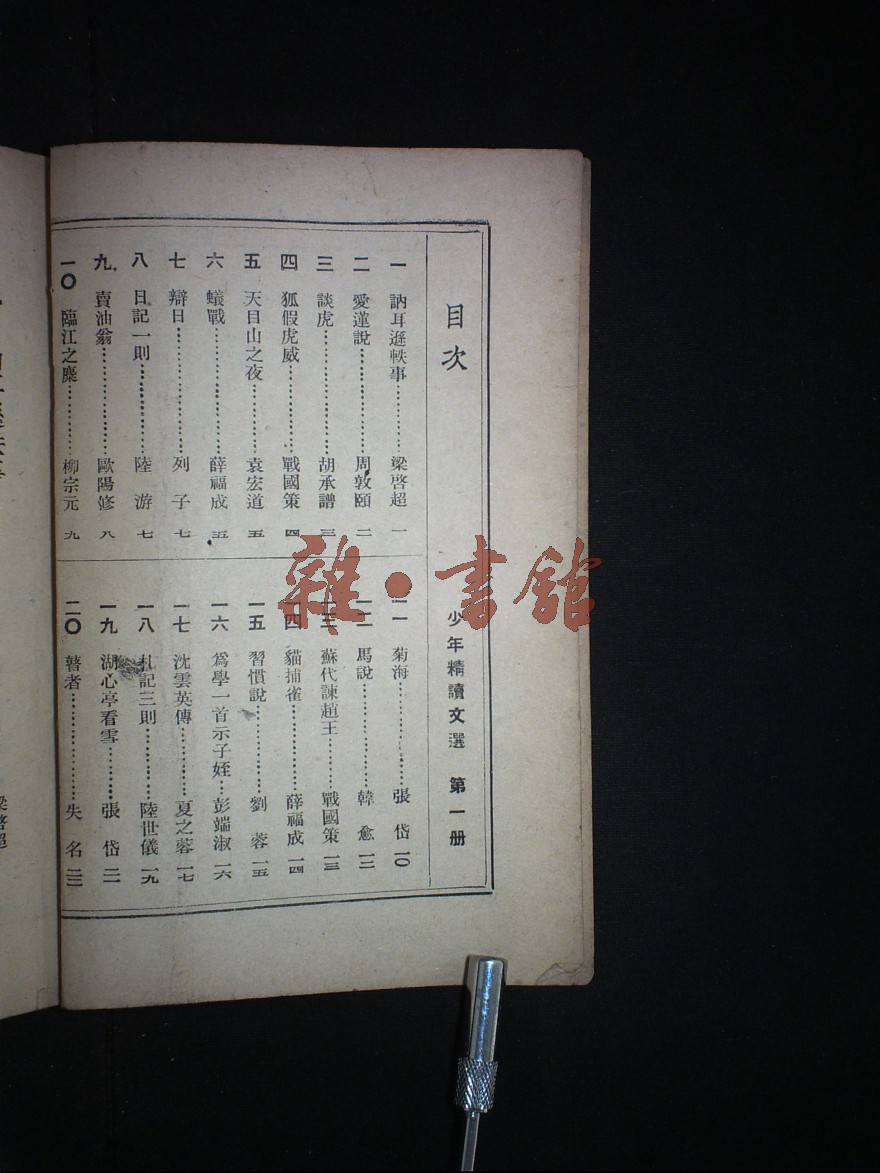 目次
少年精讀文選 第一册
一 訥耳遜軼事…………梁啓超 一
二 愛蓮說…………周敦頤 二
三 談虎…………胡承譜 三
四 狐假虎威…………戰國策 四
五 天目山之夜…………袁宏道 五
六 蟻戰…………薛福成 五
七 辯日…………列子 七
八 日記一則…………陸游 七
九 賣油翁…………歐陽修 八
一〇 臨江之麋…………柳宗元 九
一一 菊海…………張岱 一〇
一二 馬說…………韓愈 一二
一三 蘇代諫趙王…………戰國策 一三
一四 貓捕雀…………薛福成 一四
一五 習慣說…………劉蓉 一五
一六 爲學一首示子姪…彭端淑 一六
一七 沈雲英傳…………夏之蓉 一七
一八 札記三則…………陸世儀 一九
一九 湖心亭看雪…………張岱 二一
二〇 瞽者…………失名
雜·書館
梁啓超